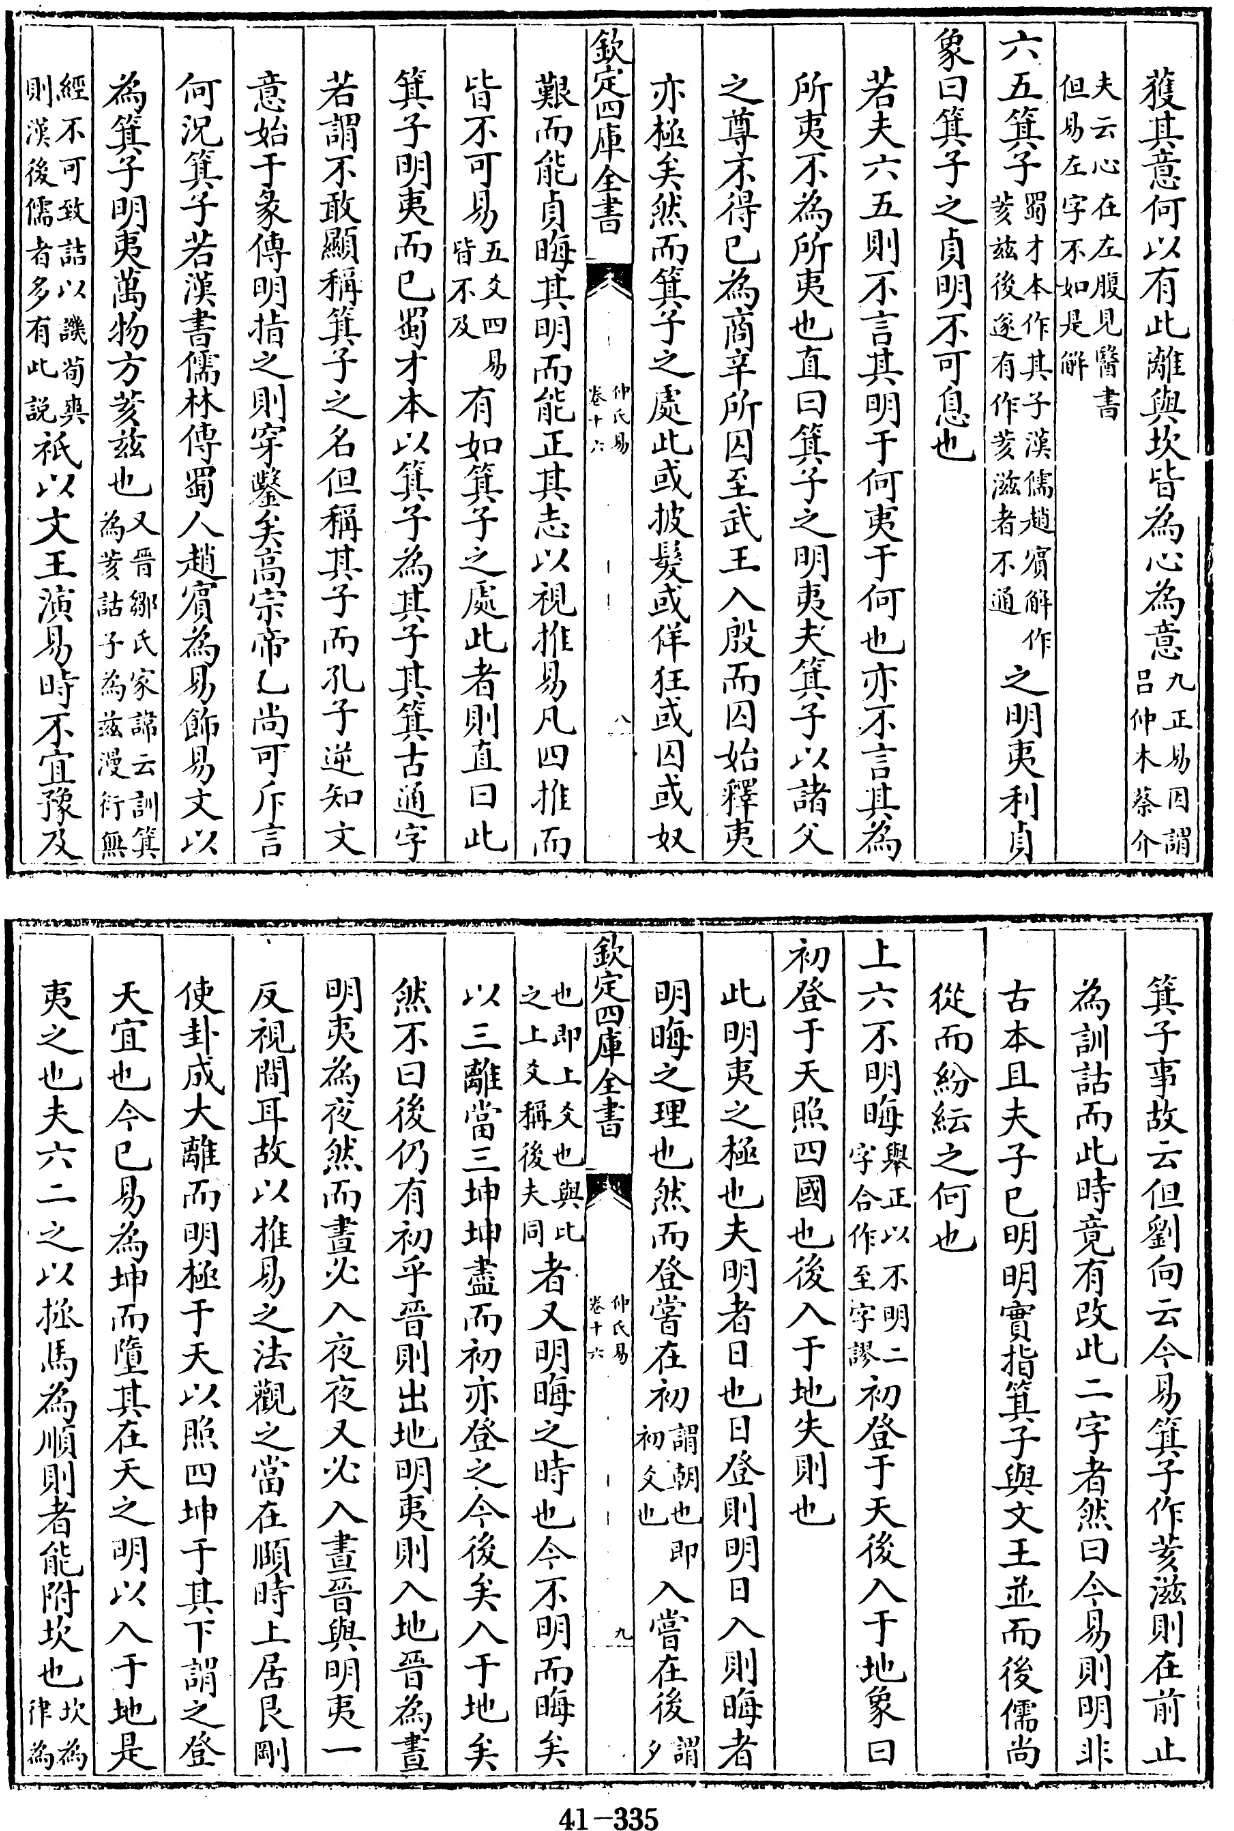 獲其意何以有此離與坎皆為心為意九正易因謂呂仲木蔡介
夫云心在左腹見醫書但易左字不如是解
六五箕子蜀才本作其子漢儒趙賓解作荄兹後遂有作荄滋者不通之明夷利貞
象曰箕子之貞明不可息也
若夫六五則不言其明于何夷于何也亦不言其為
所夷不為所夷也直曰箕子之明夷夫箕子以諸父
之尊不得已為商辛所囚至武王入殷而囚始釋夷
亦極矣然而箕子之處此或披髮或佯狂或囚或奴
欽定四庫全書 仲氏易卷十六 八
艱而能貞晦其明而能正其志以視推易凡四推而
皆不可易五爻四易皆不及有如箕子之處此者則直曰此
箕子明夷而已蜀才本以箕子為其子其箕古通字
若謂不敢顯稱箕子之名但稱其子而孔子逆知文
意始于彖傳明指之則穿鑿矣高宗帝乙尚可斥言
何況箕子若漢書儒林傳蜀人趙賓為易飾易文以
為箕子明夷萬物方荄兹也又晉鄒氏家諦云訓箕為荄詁子為兹漫衍無
經不可致詰以譏荀爽則漢後儒者多有此説祇以文王演易時不宜豫及
箕子事故云但劉向云今易箕子作荄滋則在前止
為訓詁而此時竟有改此二字者然曰今易則明非
古本且夫子已明明實指箕子與文王並而後儒尚
從而紛紜之何也
上六不明晦舉正以不明二字合作至字謬初登于天後入于地象曰
初登于天照四國也後入于地失則也
此明夷之極也夫明者日也日登則明日入則晦者
明晦之理也然而登嘗在初謂朝也即初爻也入嘗在後謂夕
欽定四庫全書 仲氏易卷十六 九
也即上爻也與此之上爻稱後夫同者又明晦之時也今不明而晦矣
以三離當三坤坤盡而初亦登之今後矣入于地矣
然不曰後仍有初乎晉則出地明夷則入地晉為晝
明夷為夜然而晝必入夜夜又必入晝晉與明夷一
反視間耳故以推易之法觀之當在頤時上居艮剛
使卦成大離而明極于天以照四坤于其下謂之登
天宜也今已易為坤而墮其在天之明以入于地是
夷之也夫六二之以拯馬為順則者能附坎也坎為律為
41-335